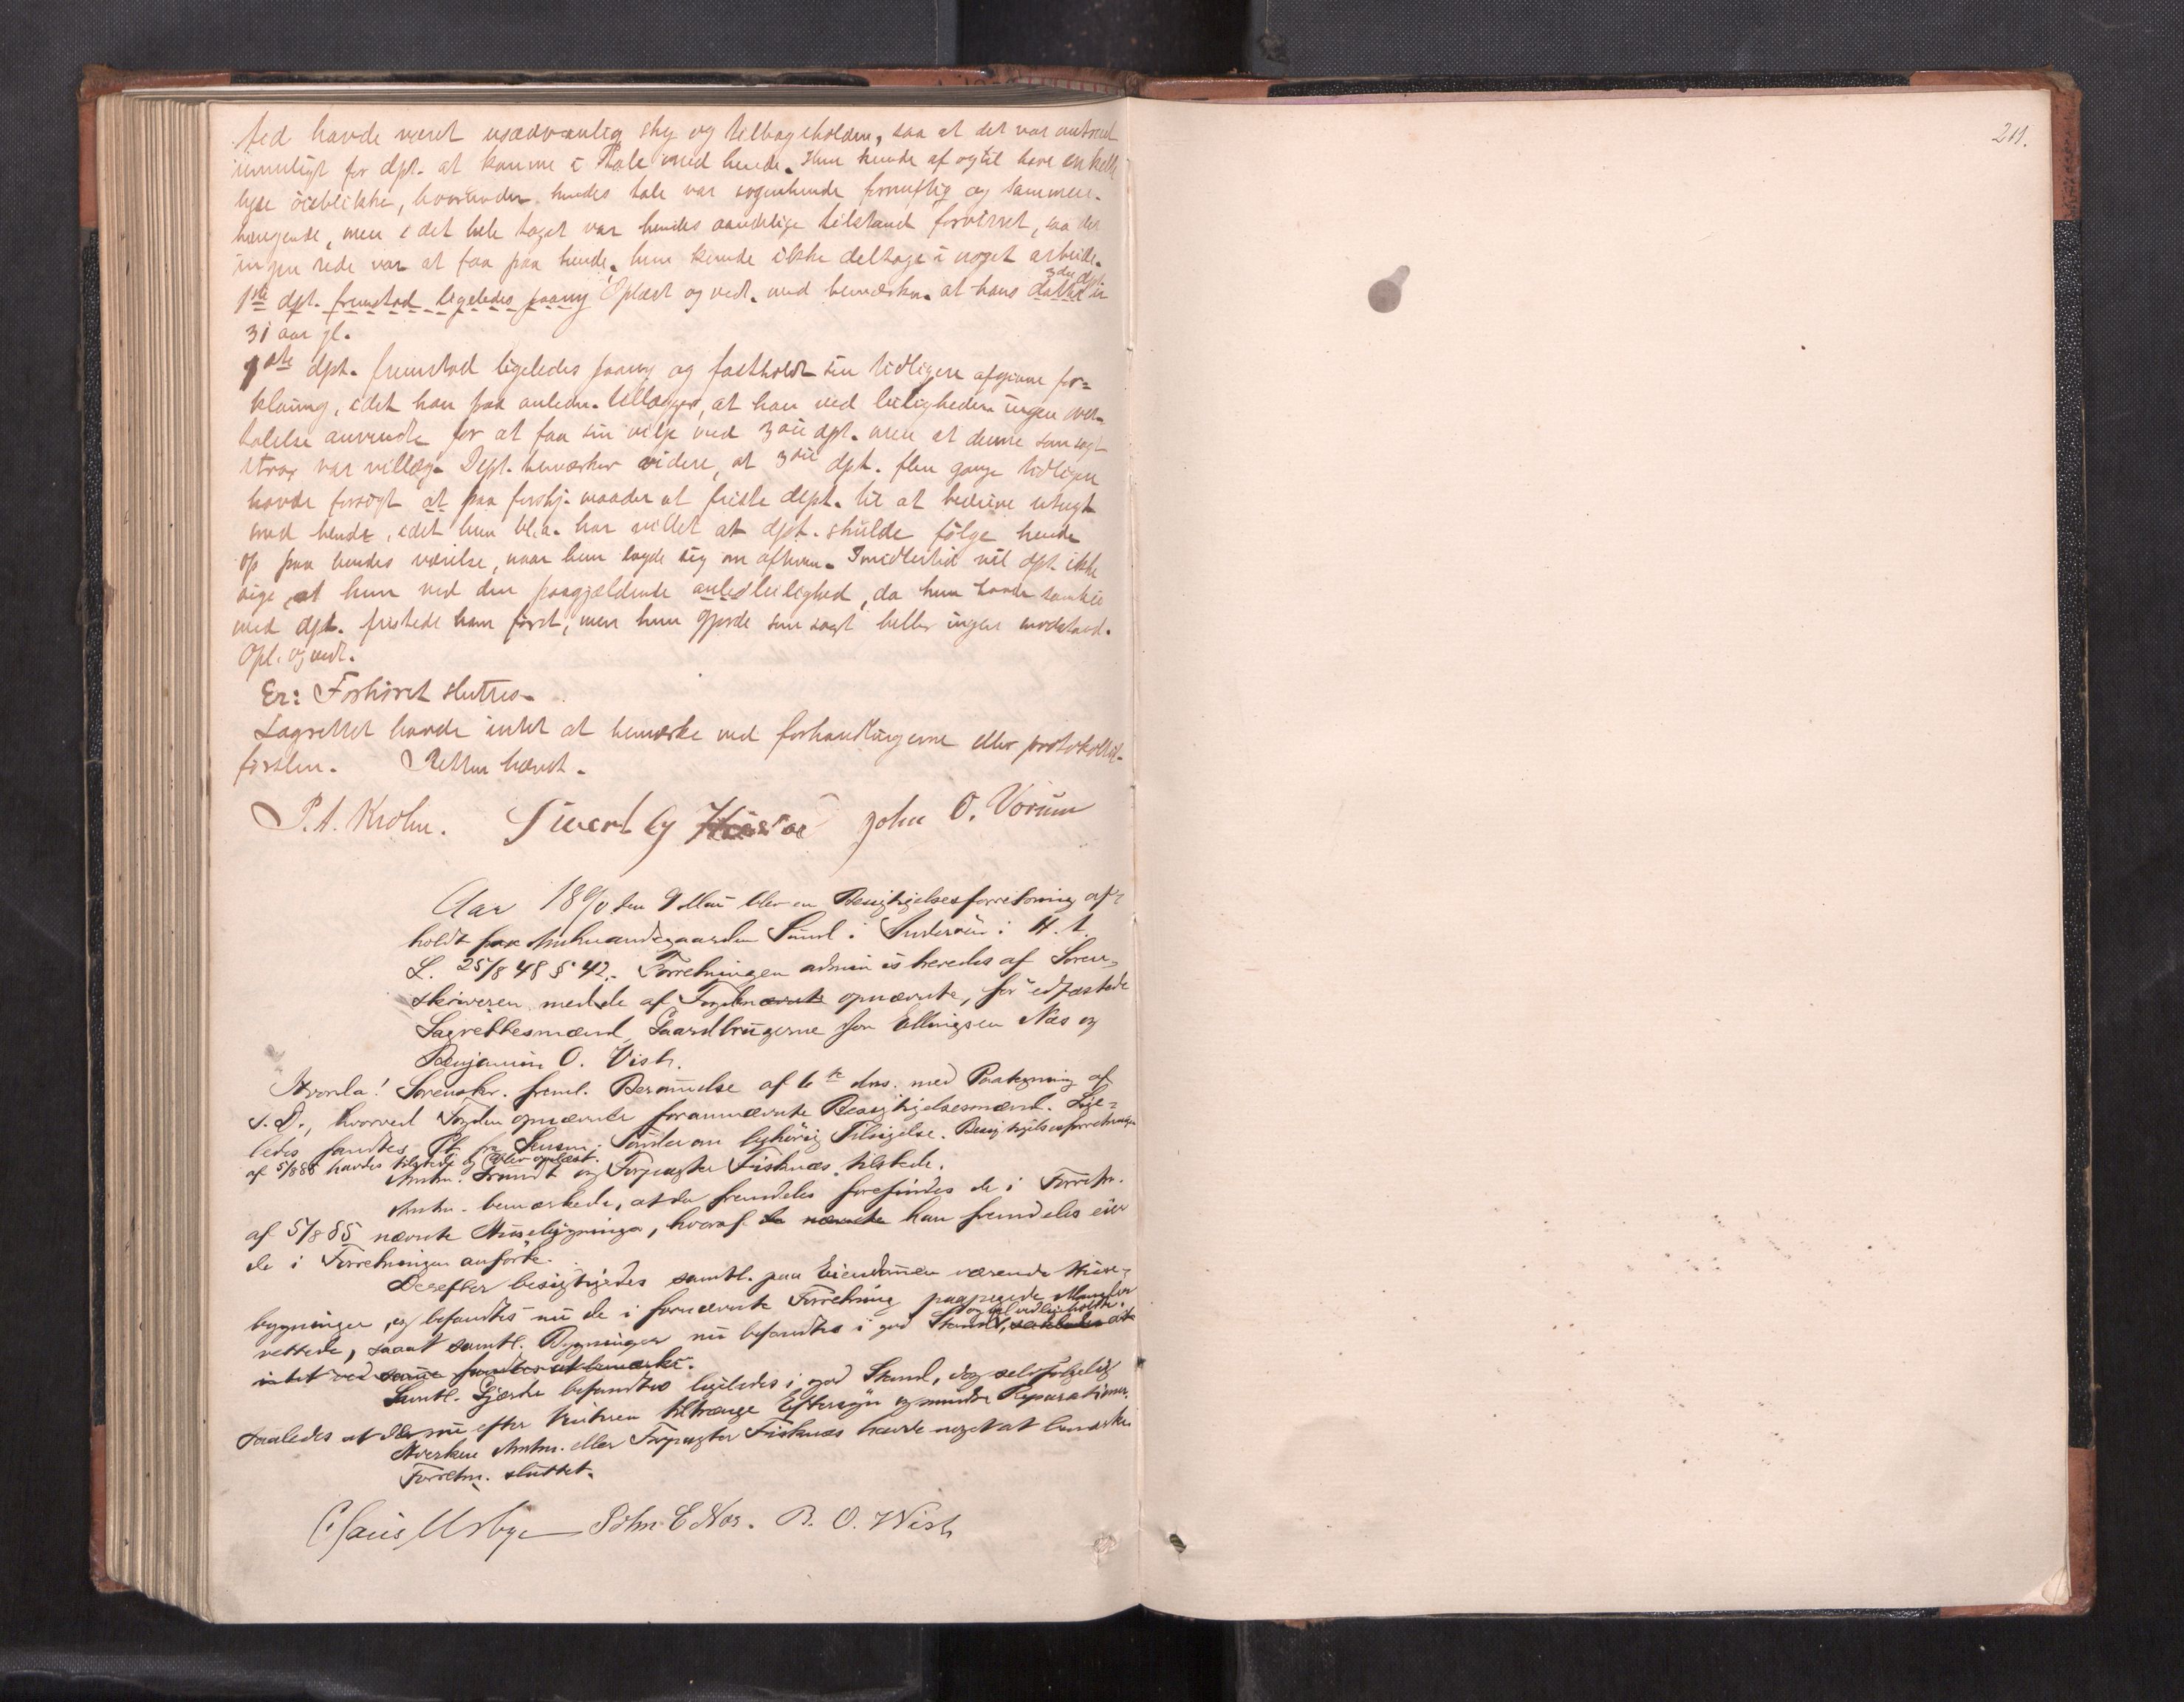 ted havde været usædvanlig sky og tilbageholden, saa at det var omtrent
umuligt for dpt. at komme i Tale med hende. Hun kunde af og til have enkelte
lyse öieblikke, hvorunder hendes tale var nogenlunde fornuftig og sammen-
hængende, men i det hele taget var hendes aandelige tilstand forvirret, saa der
ingen rede var at faa paa hende, hun kunde ikke deltage i noget arbeide.
1ste dpt. fremstod ligeledes paany Oplæst og vedt. med bemærkn. at hans datter 3die dpt. er
31 aar gl.
1ste dpt. fremstod ligeledes paany og fastholdt sin tidligere afgivne for=
klaring, idet han paa anledn. tillægger, at han ved leiligheden ingen over-
talelse anvendte for at faa sin vilje med 3die dpt. men at denne som sagt
strax var villig. Dpt. bemærker videre, at 3die dpt. flere gange tidligere
havde forsögt at paa forskj. maader at friste dept. til at bedrive utugt
med hende, idet hun bl.a. har villet at dpt. skulde fölge hende
op paa hendes værelse, naar hun lagde sig om aftenen. Imidlertid vil dpt. ikke
sige, at hun ved den paagjældende anled leilighed, da hun havde samleie
med dpt. fristede ham först, men hun gjorde som sagt heller ingen modstand.
Opl. og vedt.
Er: Forhöret sluttes.
Lagrettet havde intet at bemærke ved forhandlingerne eller protokollat-
förslen. Retten hævet.
P. A. Krohn. Sivert By John O. Vorum
Aar 1890 den 9 Mai blev en Besigtigelsesforretning af-
holdt paa Amtmandsgaarden Sund i Inderöen i H. t.
L. 25/8 48 § 42. Forretningen administreredes af Soren-
skriveren med de af Fogden nævnte opnævnte, för edfæstede
Lagrettesmænd, Gaardbrugerne Jon Ellingsen Næs og
Benjamin O. Vist.
Hvorda! Sorenskr. freml. Berammelse af 6te ds. med Paategning af
s. D., hvorved Fogden opnævnte forannævnte Besigtigelsesmænd. Lige-
ledes fandtes Pt. fra Lensm. Sunde om lyhörig Tilsigelse. Besigtigelsesforretningen
af 5/8 85 havdes tilstede og blev oplæst.
Amtm. Trundt og Forpagter Fisknæs tilstede.
Amtm. bemærkede, at der fremdeles forefindes de i Forretn.
af 5/8 85 nævnte Husebygninger, hvoraf de nævnte han fremdeles eier
de i Forretningen anförte.
Derefter besigtigedes samtl. paa Eiendommen værende Huse-
bygninger, og befandtes nu de i fornævnte Forretning paapegede Mangler
rettede, saaat samtl. Bygninger nu befandtes i god Stand og vel vedligeholdte, saaledes at
intet ved samme fandtes at bemærke.
Samtl. Gjærder befandtes ligeledes i god Stand, dog selvfölgelig
saaledes at de nu efter Vinteren tiltrænge Eftersyn og mindre Reparationer.
Hverken Amtm. eller Forpagter Fisknæs havde noget at bemærke.
Forretn. sluttet.
Claus Urbye John E Næs. B. O. Wist
211.